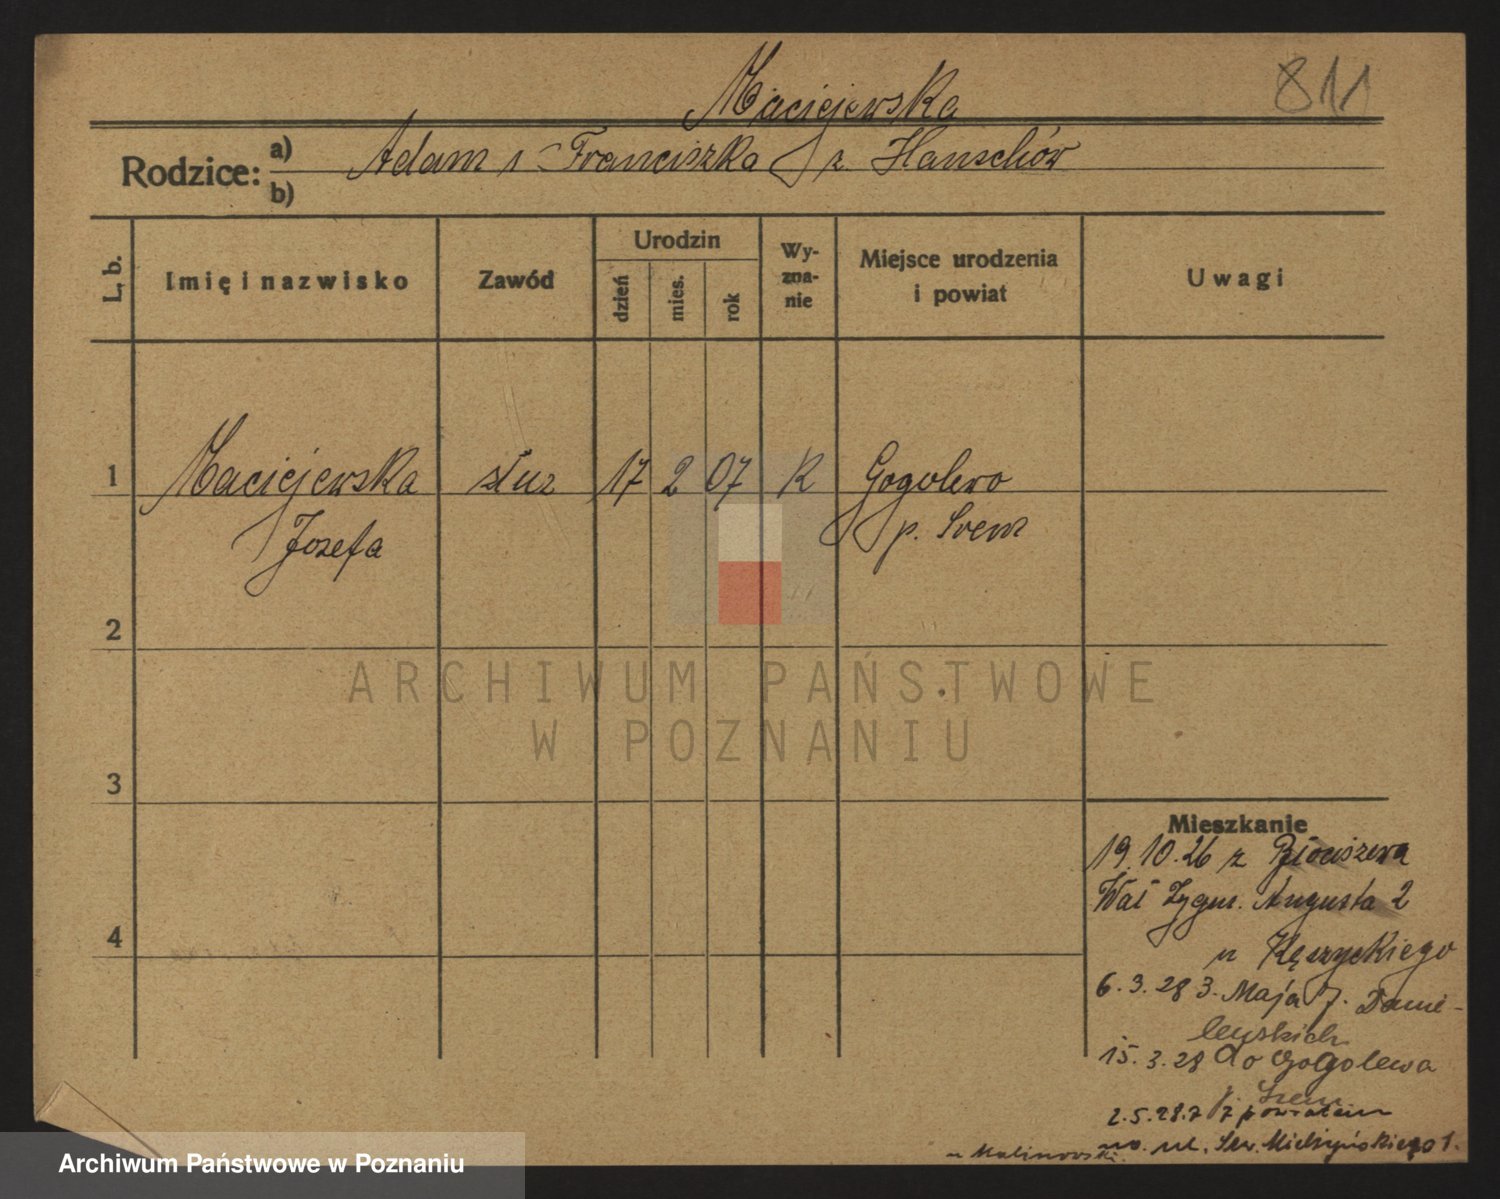 811
Maciejewska
Rodzice: a) Adam i Franciszka z. Hanschów
b)
L. b.
Imię i nazwisko
Zawód
Urodzin
dzień
mies.
rok
Wy-
zna-
nie
Miejsce urodzenia
i powiat
Uwagi
1 Maciejewska służ 17 2 07 R Gogolewo
Józefa p. Śrem
2
3
4
ARCHIWUM PAŃSTWOWE
W POZNANIU
Mieszkanie
19.10.26 z
Wał Zygm. Augusta 2
u Kęszyckiego
6.3.28 3. Maja 7. Danie-
lewskich
15.3.28 do Gogolewa
p. Śrem
2.5.28. z powrotem
na ul. Sew. Mielżyńskiego 1.
u Malinowski.
Archiwum Państwowe w Poznaniu